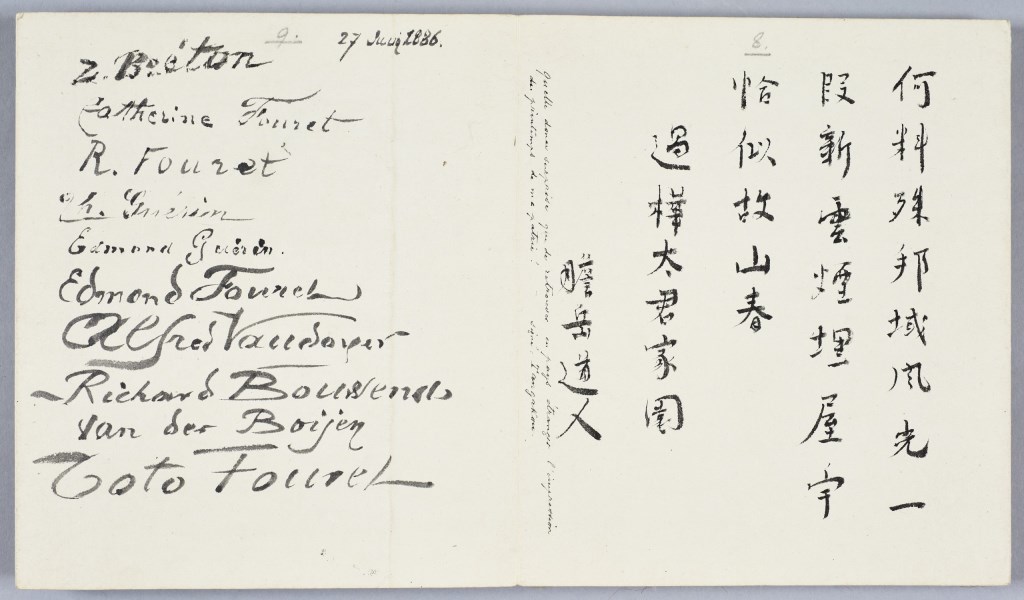 9.
27 Juin 1886.
Z. Bréton
Catherine Fouret
R. Fouret
Ch. Guérin
Edmond Guérin.
Edmond Fouret
Alfred Vaudoyer
Richard Bouwens
van der Boijen
Toto Fouret
8.
何料殊邦域風光一
段新雲煙埋屋宇
恰似故山春
過樺太君家園
瞻岳道人
Quelle douce surprise que de retrouver en pays étranger l'impression
du printemps de ma patrie! signé: